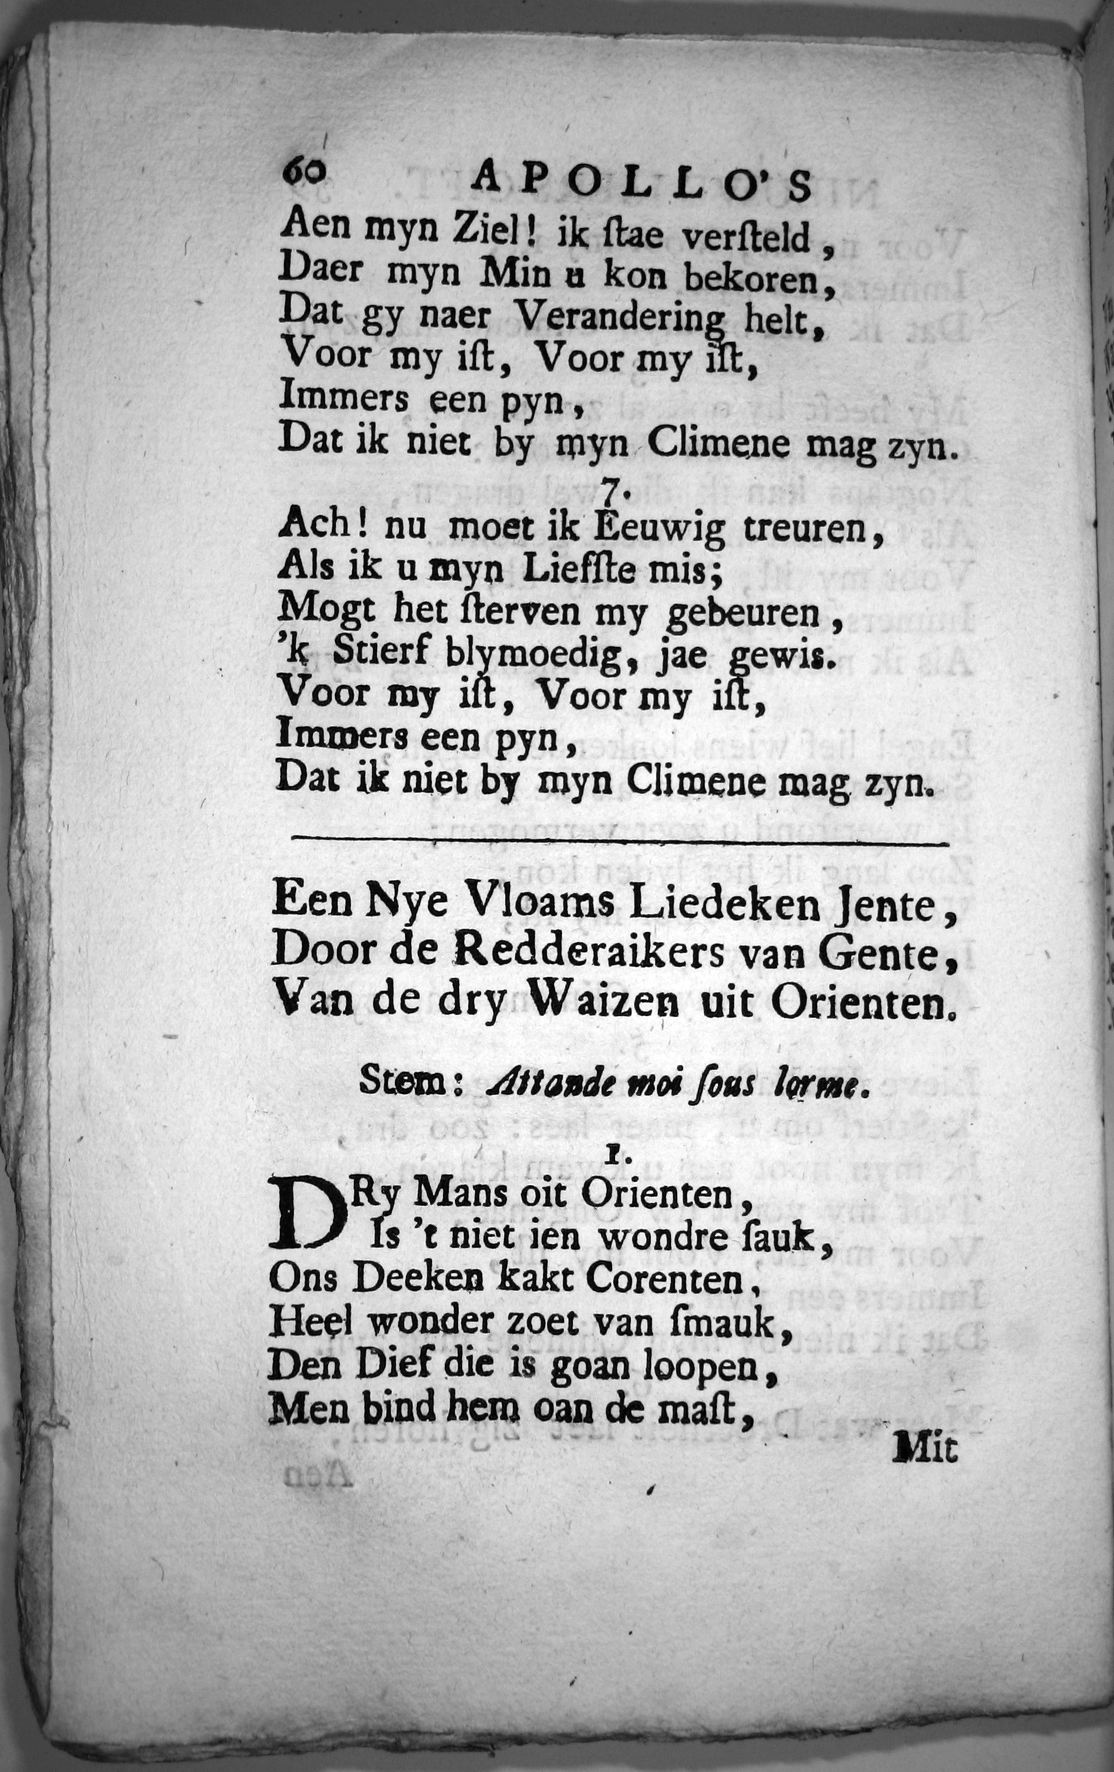 60 APOLLO'S
Aen myn Ziel! ik ſtae verſteld,
Daer myn Min u kon bekoren,
Dat gy naer Verandering helt,
Voor my iſt, Voor my iſt,
Immers een pyn,
Dat ik niet by myn Climene mag zyn.
7.
Ach! nu moet ik Eeuwig treuren,
Als ik u myn Liefſte mis;
Mogt het ſterven my gebeuren,
'k Stierf blymoedig, jae gewis.
Voor my iſt, Voor my iſt,
Immers een pyn,
Dat ik niet by myn Climene mag zyn.
Een Nye Vloams Liedeken Jente,
Door de Redderaikers van Gente,
Van de dry Waizen uit Orienten.
Stem: Attande moi ſous lorme.
1.
DRy Mans oit Orienten,
Is 't niet ien wondre ſauk,
Ons Deeken kakt Corenten,
Heel wonder zoet van ſmauk,
Den Dief die is goan loopen,
Men bind hem oan de maſt,
Mit